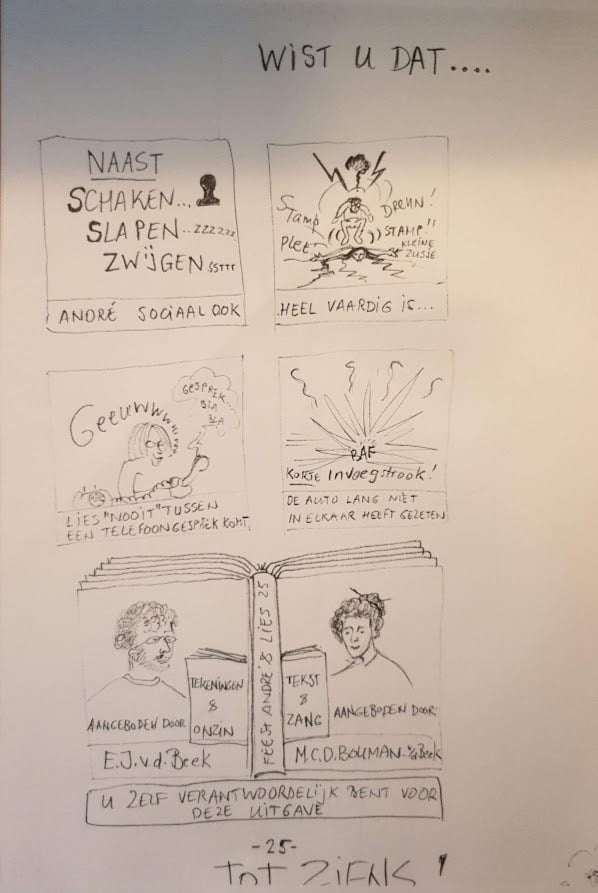 WIST U DAT....
NAAST
SCHAKEN...
SLAPEN..zzzzzz
ZWIJGEN.sstttt
ANDRÉ SOCIAAL OOK
DREUN!
Stamp
STAMP!!
Plet
KLEINE
ZUSJE
HEEL VAARDIG IS...
Geeuwwwwwww
GESPREK
BLA
BLA
LIES "NOOIT" TUSSEN
EEN TELEFOONGESPREK KOMT,
BAF
KORTE invoegstrook!
DE AUTO LANG NIET
IN ELKAAR HEEFT GEZETEN
AANGEBODEN DOOR
TEKENINGEN
&
ONZIN
E.J.v.d.Beek
FEEST ANDRÉ & LIES 25
TEKST
&
ZANG
AANGEBODEN DOOR:
M.C.D. BOUMAN-v/d Beek
U ZELF VERANTWOORDELIJK BENT VOOR
DEZE UITGAVE
-25-
TOT ZIENS!